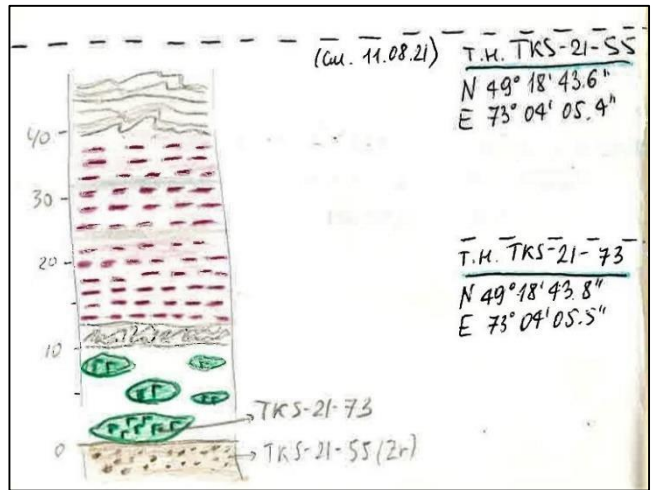 (см. 11.08.21)
Т.Н. TKS-21-55
N 49° 18' 43.6"
E 73° 04' 05.4"
40
30
Т.Н. TKS-21-73
20
N 49° 18' 43.8"
E 73° 04' 05.5"
10
TKS-21-73
0
TKS-21-55 (2г)